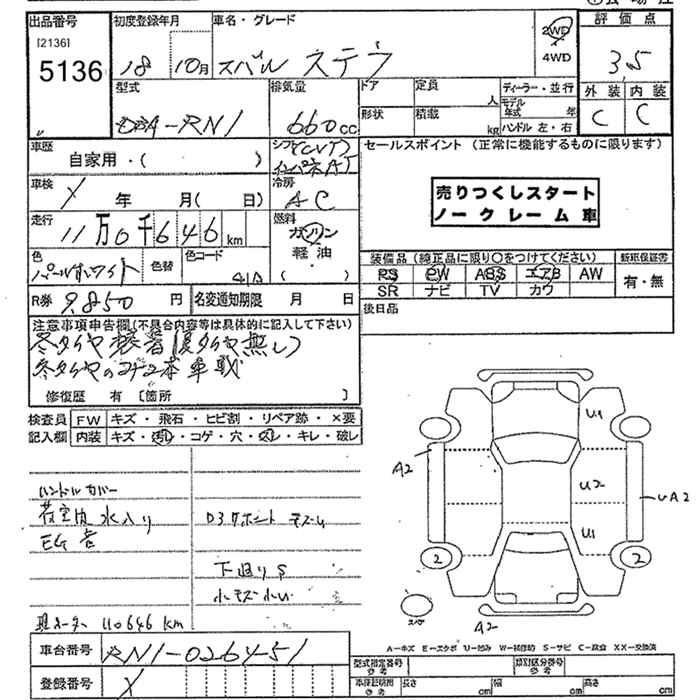 出品番号
[2136]
5136
初度登録年月
18 10月
車名・グレード
スバル ステラ
2WD
4WD
評価点
3.5
外装 内装
C C
型式
DBA-RN1
排気量
660cc
ドア
定員
人
形状
積載
kg
ディーラー・並行
モデル年式 年
ハンドル 左・右
車歴
自家用・( )
シフト
(CVT)
インパネAT
セールスポイント (正常に機能するものに限ります)
売りつくしスタート
ノークレーム車
車検
X 年 月( 日)
冷房
AC
走行
11万0千646km
燃料
ガソリン
軽油
( )
色
パールホワイト
色替
色コード
41A
装備品(純正品に限り○をつけてください)
PS PW ABS エアB AW
SR ナビ TV カワ
新車保証書
有・無
R券 9,850 円
名変通知期限 月 日
後日品
注意事項申告欄(不具合内容等は具体的に記入して下さい)
冬タイヤ装着(夏タイヤ無し)
修復歴 有 [箇所 ]
検査員記入欄
FW キズ・飛石・ヒビ割・リペア跡・×要
内装 キズ・汚れ・コゲ・穴・スレ・キレ・破レ
ハンドルカバー
荷室内水入り
EG音
下廻りS
小キズ小凹
現メーター 110646 km
U1
A2
U2
UA2
U1
2
2
スペア
A2
A=キズ E=エクボ U=凹み W=補修跡 S=サビ C=腐食 XX=交換済
車台番号
RN1-026451
登録番号
X
型式指定番号
参考
類別区分番号
参考
車体証明用
参考
長さ cm
幅 cm
高さ cm